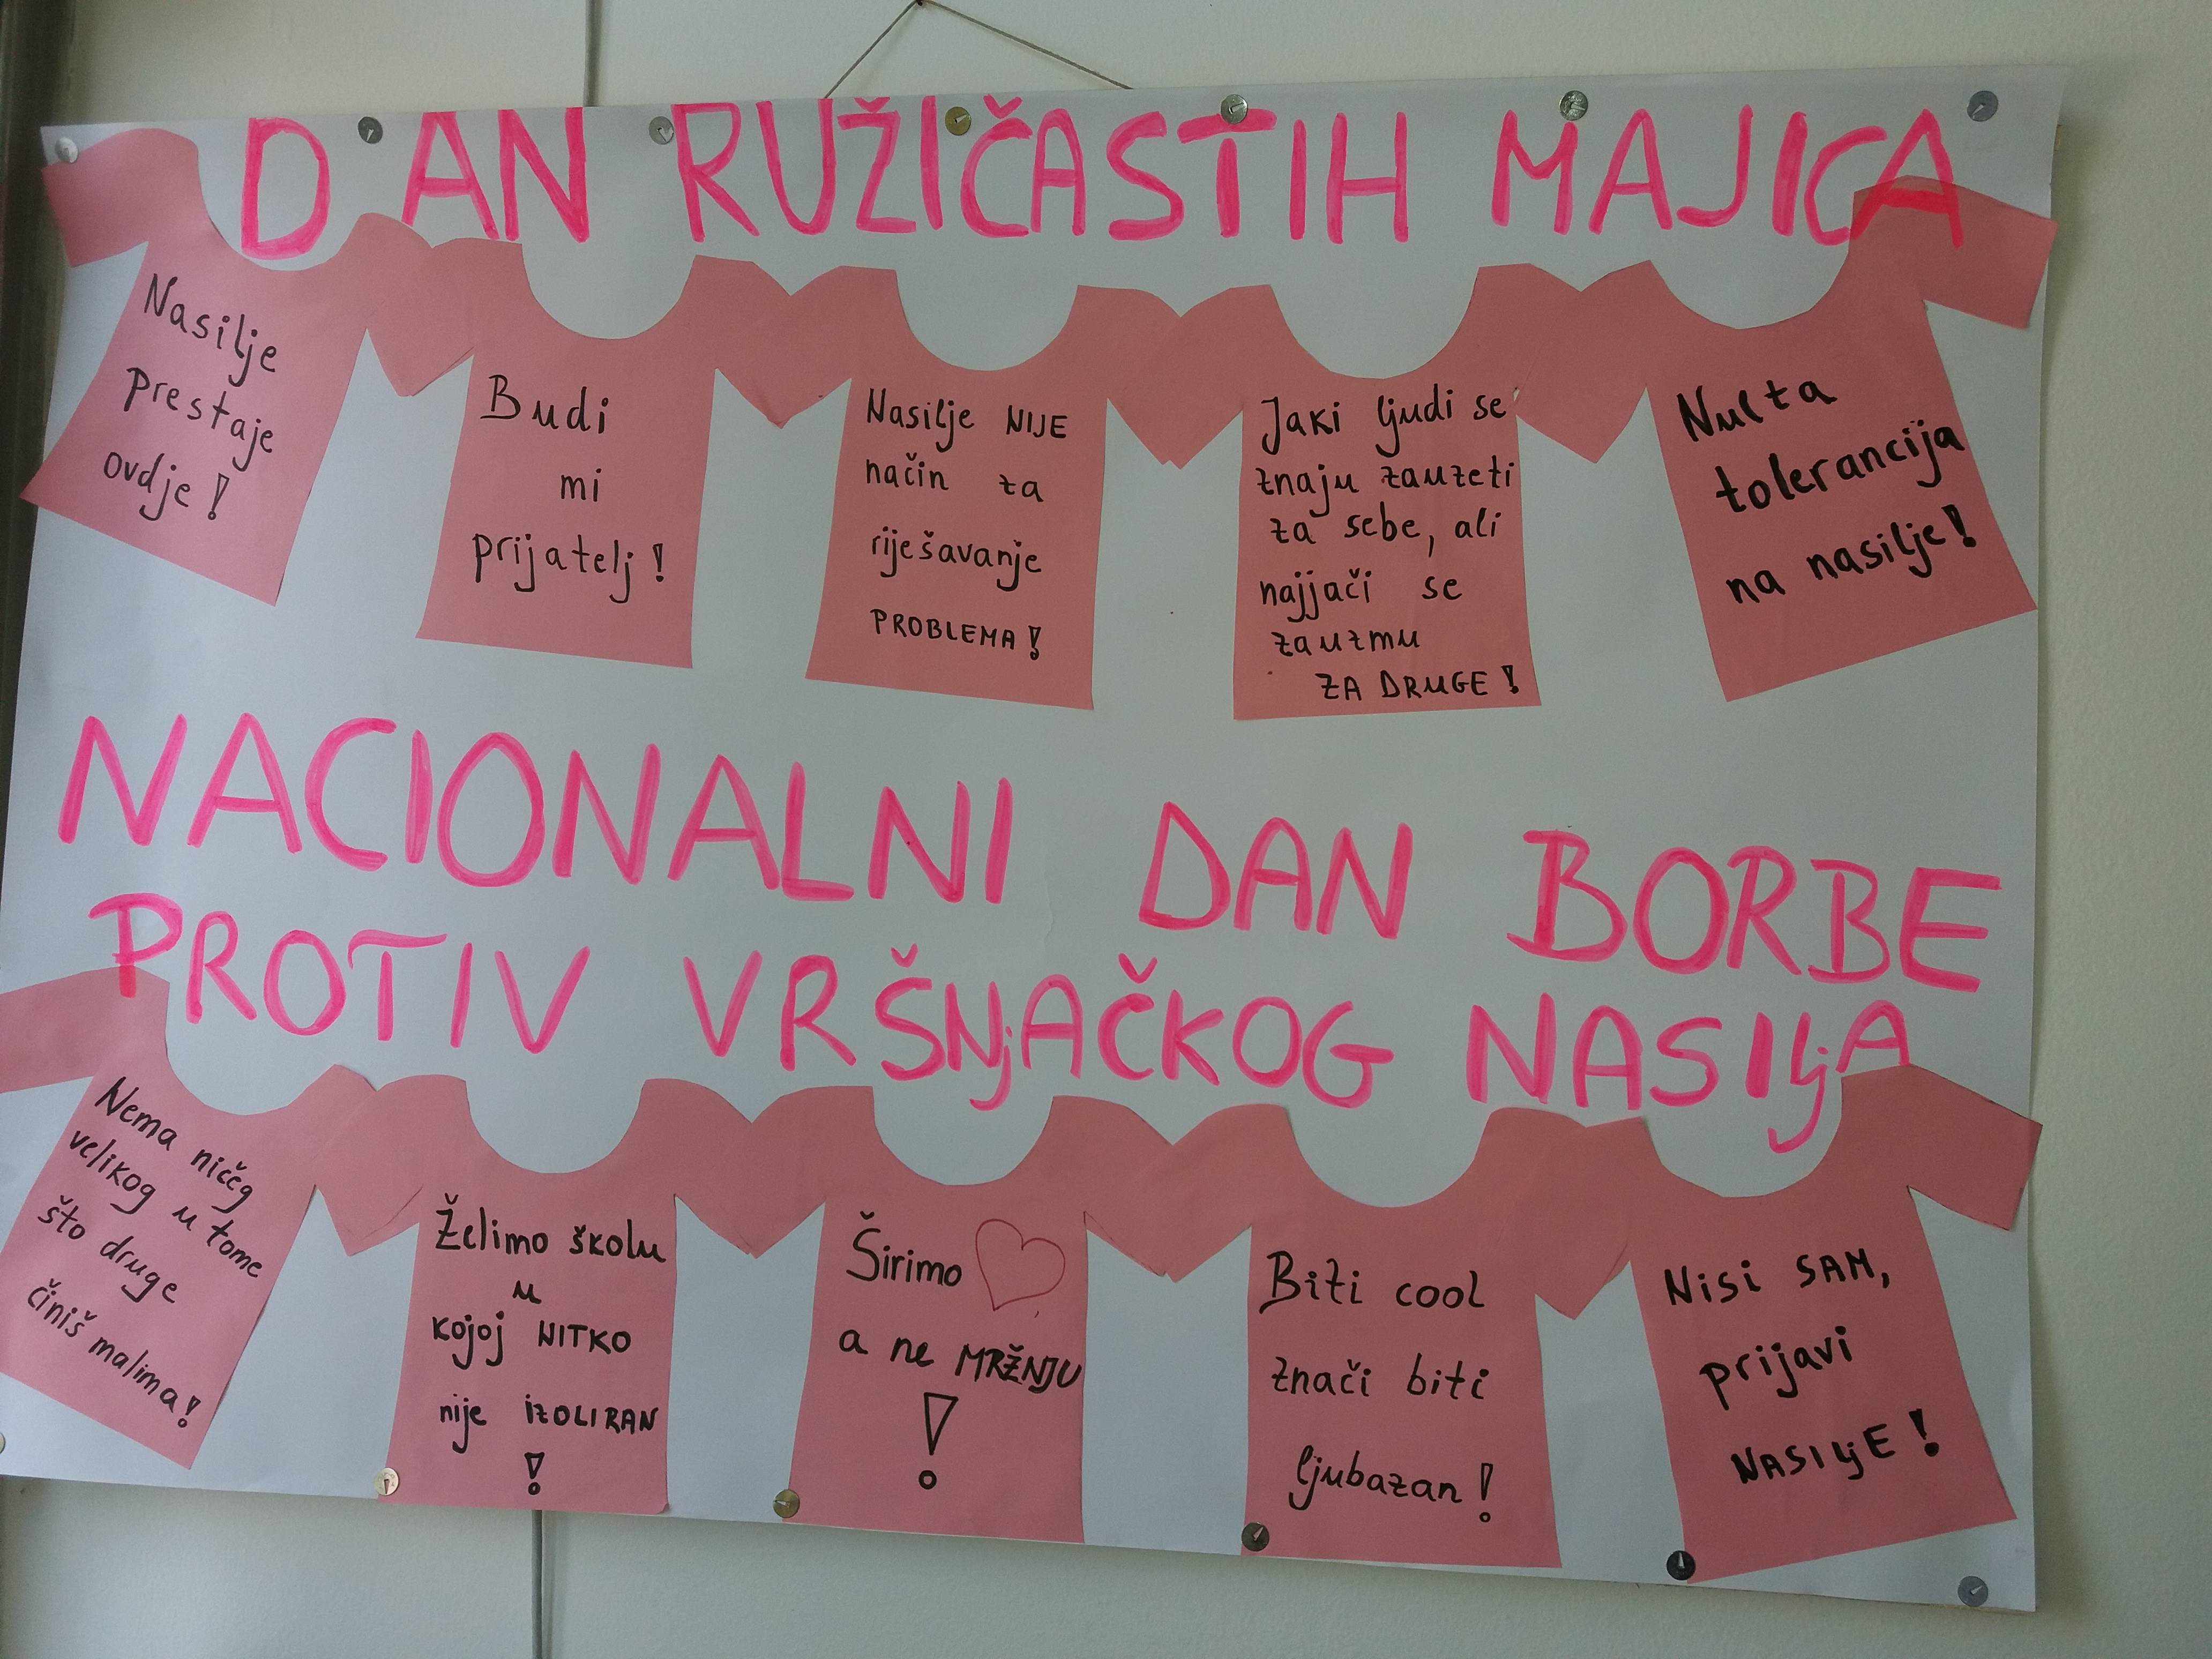 DAN RUŽIČASTIH MAJICA
Nasilje
prestaje
ovdje!
Budi
mi
prijatelj!
Nasilje NIJE
način za
riješavanje
PROBLEMA!
Jaki ljudi se
znaju zauzeti
za sebe, ali
najjači se
zauzmu
ZA DRUGE!
Nulta
tolerancija
na nasilje!
NACIONALNI DAN BORBE
PROTIV VRŠNjAČKOG NASILjA
Nema ničeg
velikog u tome
što druge
činiš malima!
Želimo školu
u
kojoj NITKO
nije IZOLIRAN
!
Širimo
a ne MRŽNJU
!
Biti cool
znači biti
ljubazan!
Nisi SAM,
prijavi
NASILjE!